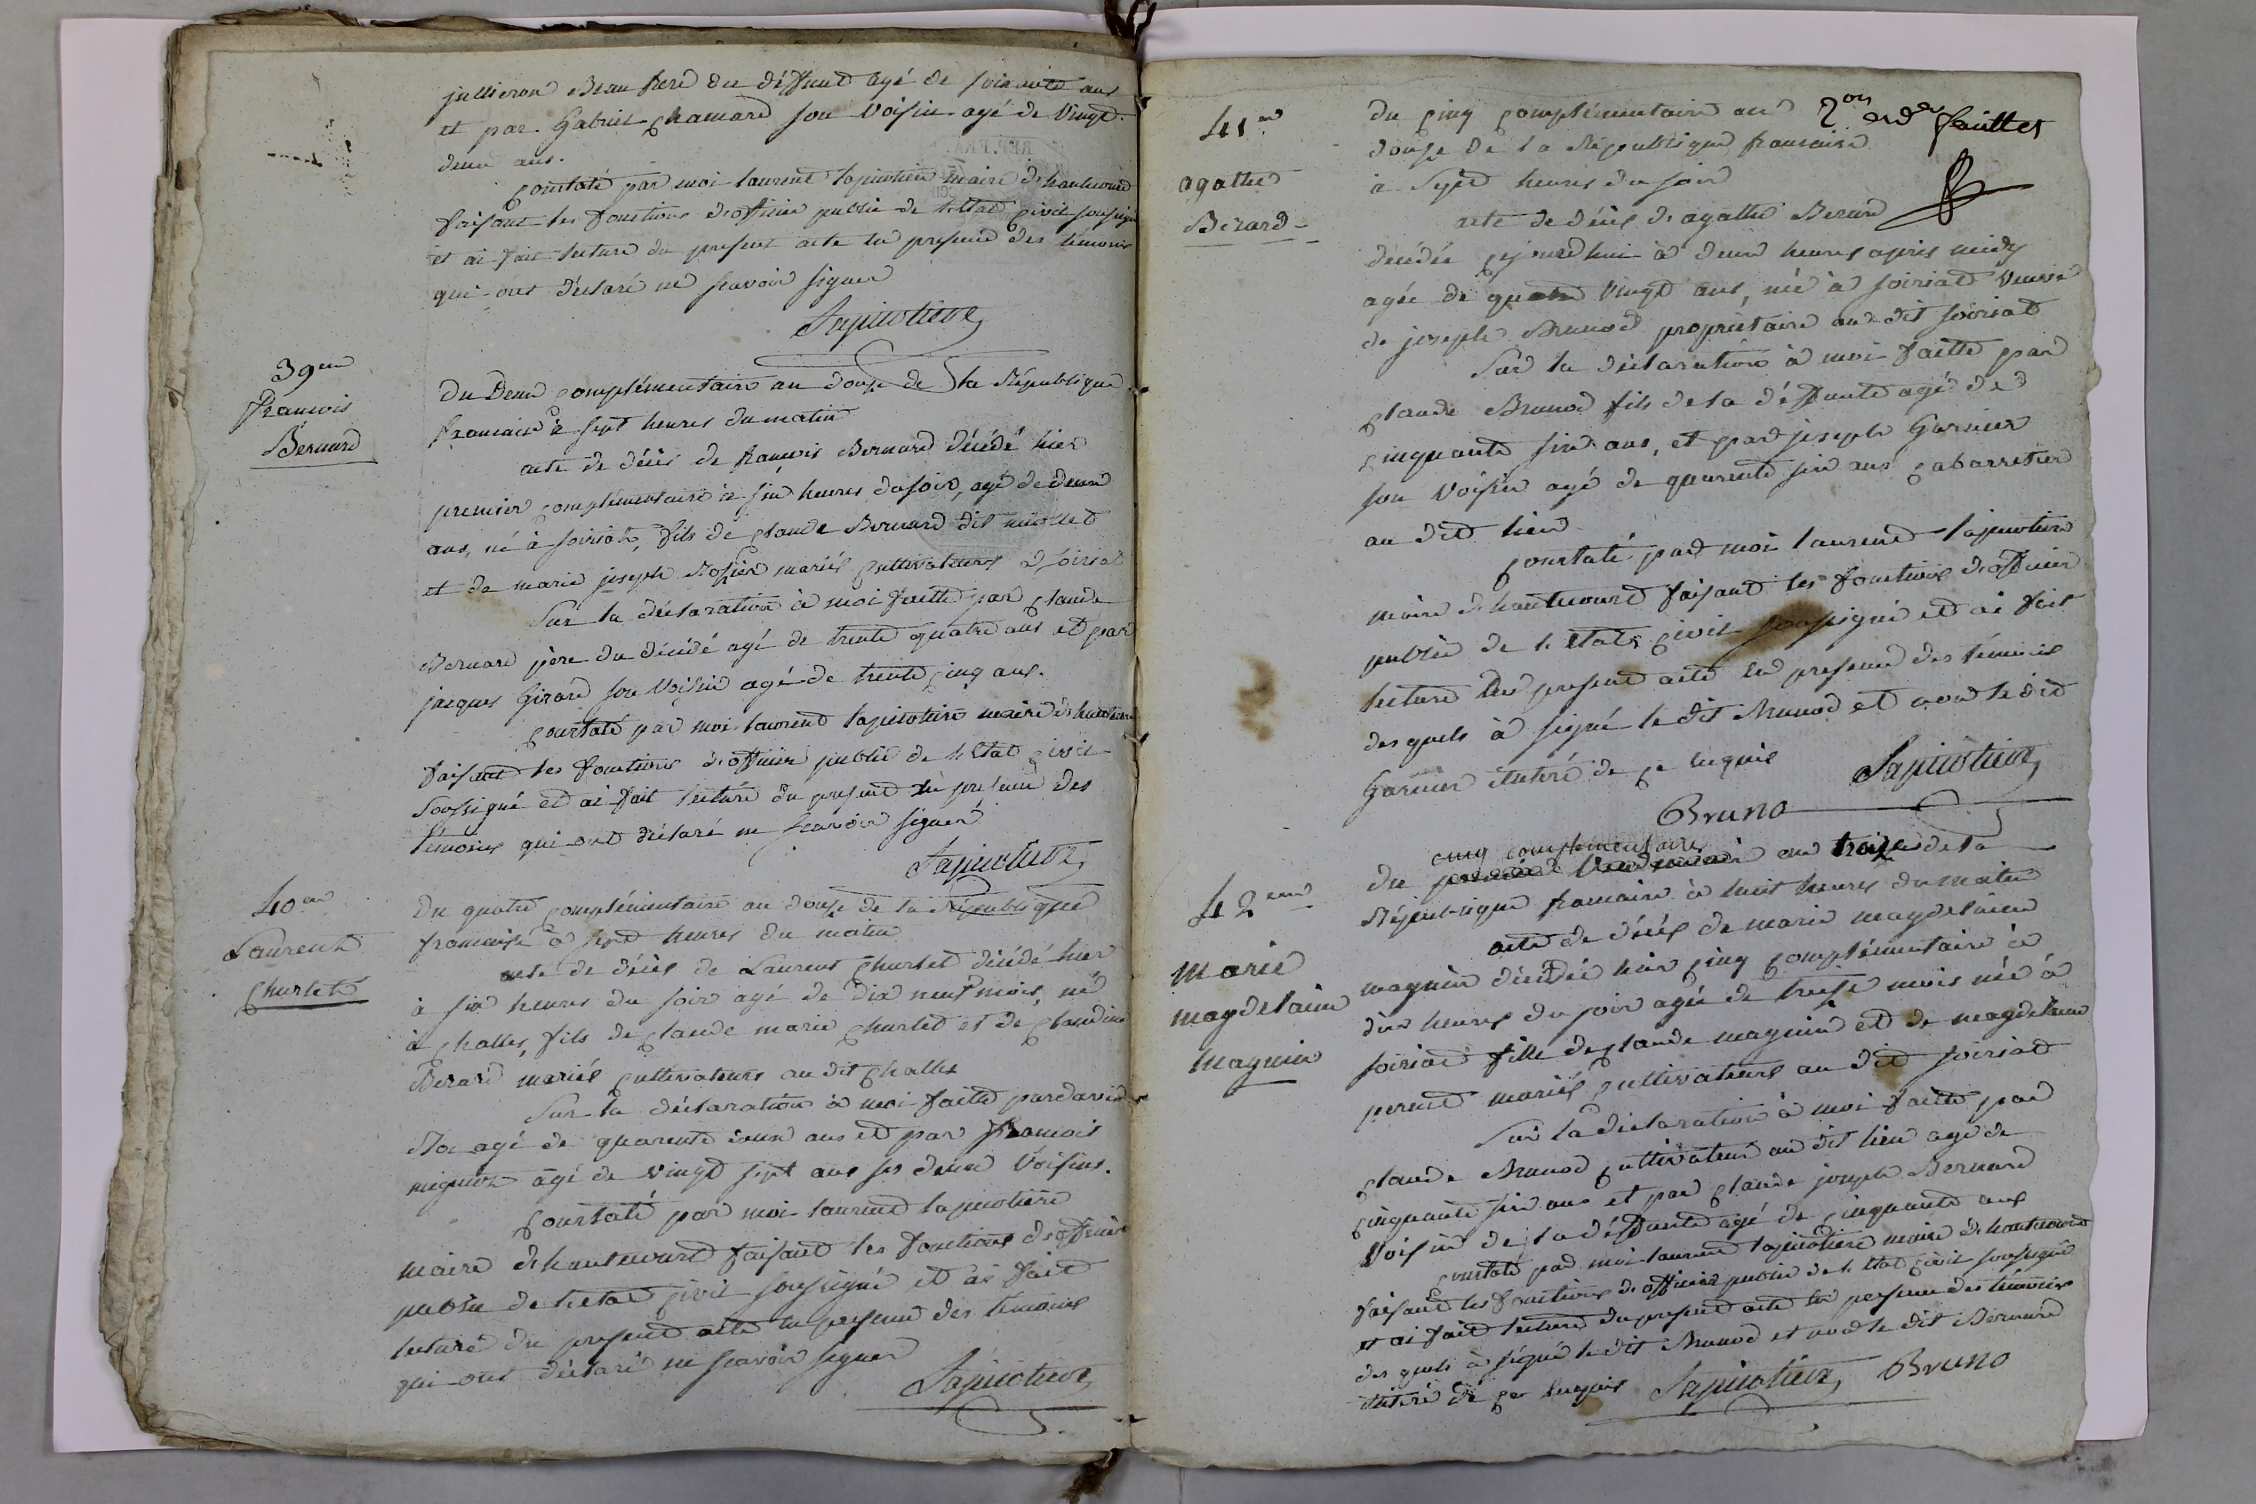 jullieron Beau frere du déffunt agé de soixante ans
et par Gabriel chanard son voisin agé de vingt
deux ans.
constaté par moi laurent lapierotiere maire d'hautecourt
faisant les fonctions d'officier public de l'état civil soussigné
et ai fait lecture du present acte en presence des témoins
qui ont déclaré ne scavoir signer
39em
francois
Bernard
Du Deux complémentaire an douze de la République
francaise à sept heures du matin
acte de décès de francois Bernard décédé hier
premier complémentaire à six heures du soir, agé de deux
ans, né à soiriat, fils de claude Bernard dit
et de marie joseph mariés cultivateurs à soiriat
Sur la déclaration à moi faitte par claude
Bernard père du décédé agé de trente quatre ans et par
jacques Girard son voisin agé de trente cinq ans.
constaté par moi laurent lapierotiere maire d'hautecourt
faisant les fonctions d'officier public de l'état civil
soussigné et ai fait lecture du present en presence des
témoins qui ont déclaré ne scavoir signer
40em
Laurent
churlet
Du quatre complémentaire an douze de la République
francaise à sept heures du matin
acte de décès de Laurent churlet décédé hier
à six heures du soir agé de dix neuf mois, né
à challes, fils de claude marie churlet et de claudine
Berard mariés cultivateurs au dit challes
Sur la déclaration à moi faitte par
agé de quarante ans et par francois
agé de vingt sept ans ses deux voisins.
constaté par moi laurent lapierotiere
maire d'hautecourt faisant les fonctions d'officier
public de l'état civil soussigné et ai fait
lecture du present acte en presence des témoins
qui ont déclaré ne scavoir signer
feuillet
41em
agathe
Berard
du cinq complémentaire an
douze de la République francaise
à sept heures du soir
acte de décès d'agathe Berard
décédée cejourd'hui à deux heures apres midy
agée de quatre vingt ans, née à soiriat veuve
de joseph Brunod propriétaire au dit soiriat
Sur la déclaration à moi faitte par
claude Brunod fils de la déffunte agé de
cinquante six ans, et par joseph Garnier
son voisin agé de quarante six ans cabarretier
au dit lieu
constaté par moi laurent lapierotiere
maire d'hautecourt faisant les fonctions d'officier
public de l'état civil soussigné et ai fait
lecture du present acte en presence des témoins
des quels à signé le dit Brunod et non le dit
Garnier illitéré de ce requis
Bruno
42eme
marie
magdelaine
magnin
cinq complementaire
du premier Vendemiaire an treize de la
République francaise à huit heures du matin
acte de décès de marie magdelaine
magnin décédée hier cinq complémentaire à
dix heures du soir agée de treize mois née à
soiriat fille de claude magnin et de magdelaine
mariés cultivateurs au dit soiriat
Sur la déclaration à moi faitte par
claude Brunod cultivateur au dit lieu agé de
cinquante six ans et par claude joseph Bernard
voisin de la déffunte agé de cinquante ans
constaté par moi laurent lapierotiere maire d'hautecourt
faisant les fonctions d'officier public de l'état civil soussigné
et ai fait lecture du present acte en presence des témoins
des quels à signé le dit Brunod et non le dit Bernard
illitéré de ce requis
Bruno